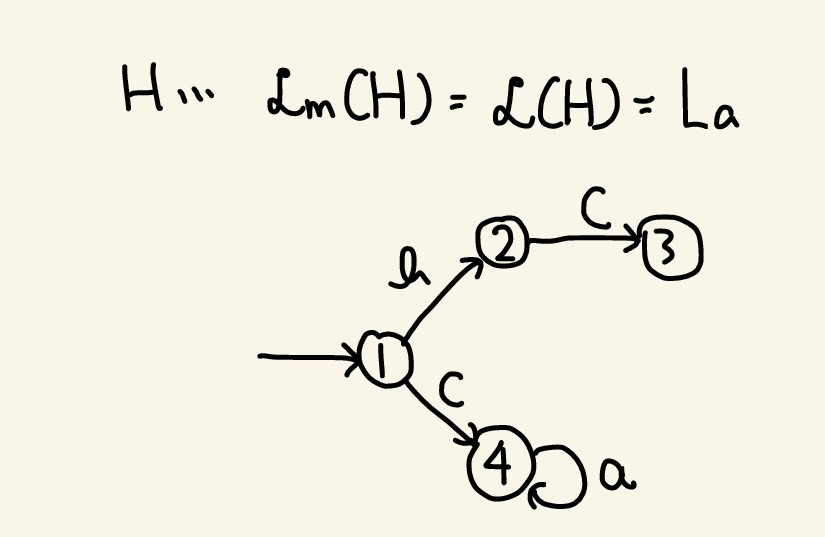 H... ℒm(H) = ℒ(H) = La
C
2 3
b
1
C
4 a